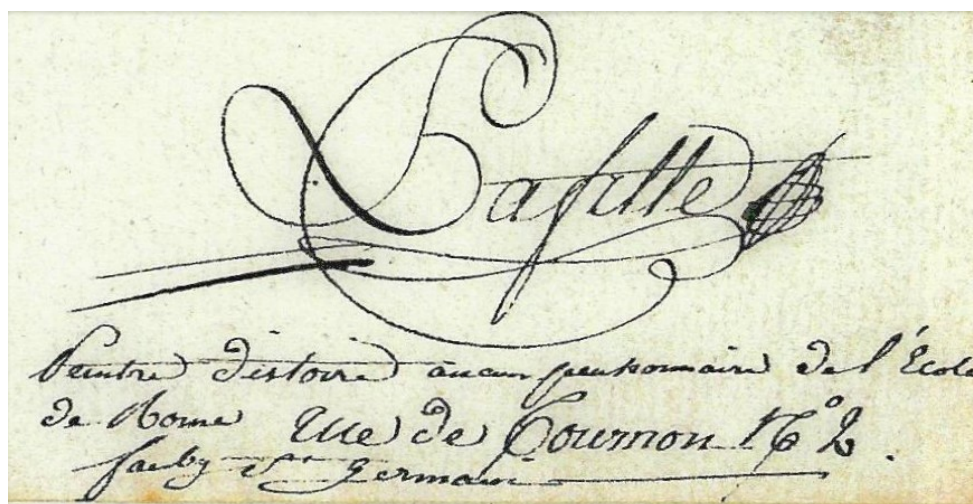 Lafitte
Peintre d'istoire ancien pensionnaire de l'École
de Rome Rue de Tournon N° 2.
faubg St Germain